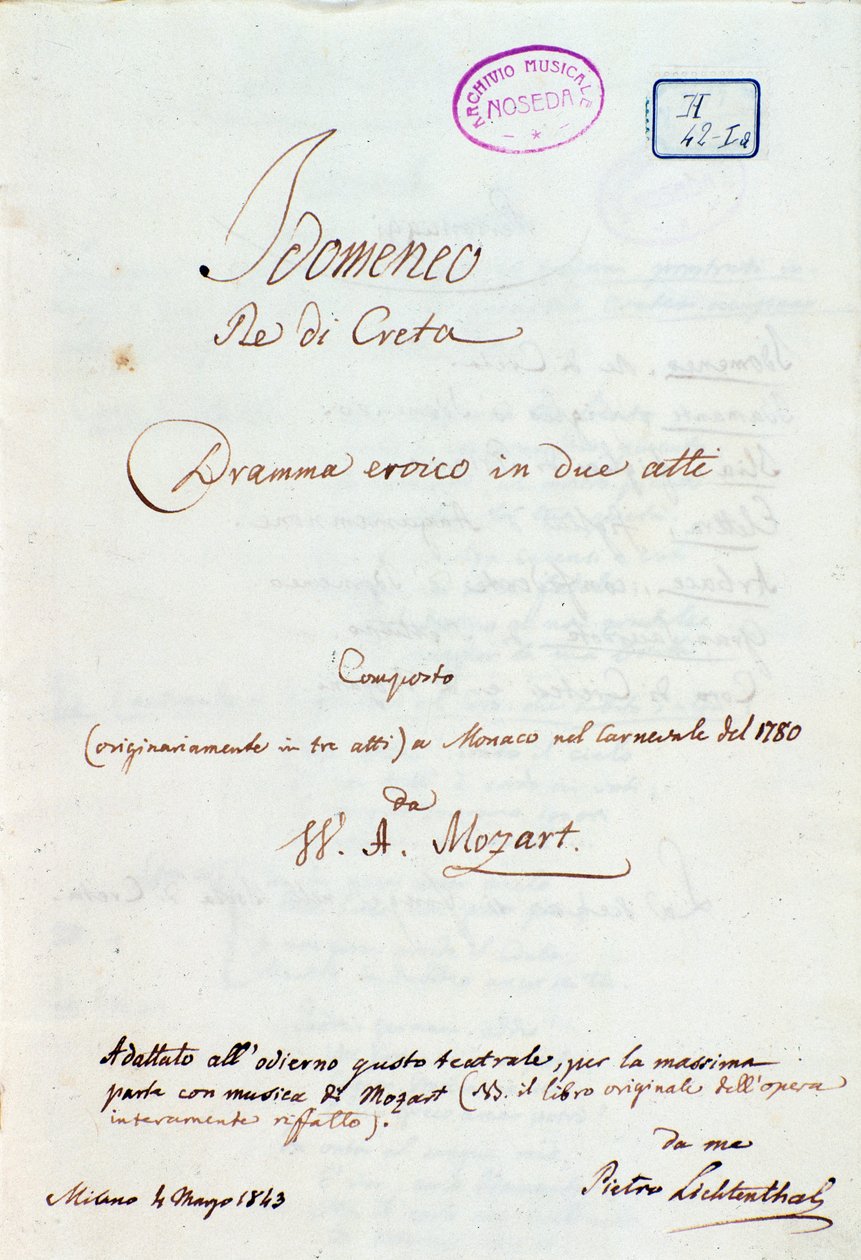 ARCHIVIO MUSICALE
NOSEDA
H
42-Ia
Idomeneo
Re di Creta
Dramma eroico in due atti
Composto
(originariamente in tre atti) a Monaco nel Carnevale del 1780
da
W. A. Mozart.
Adattato all'odierno gusto teatrale, per la massima
parte con musica di Mozart (NB. il libro originale dell'opera
interamente riffatto).
da me
Pietro Lichtenthal
Milano 4 Marzo 1843